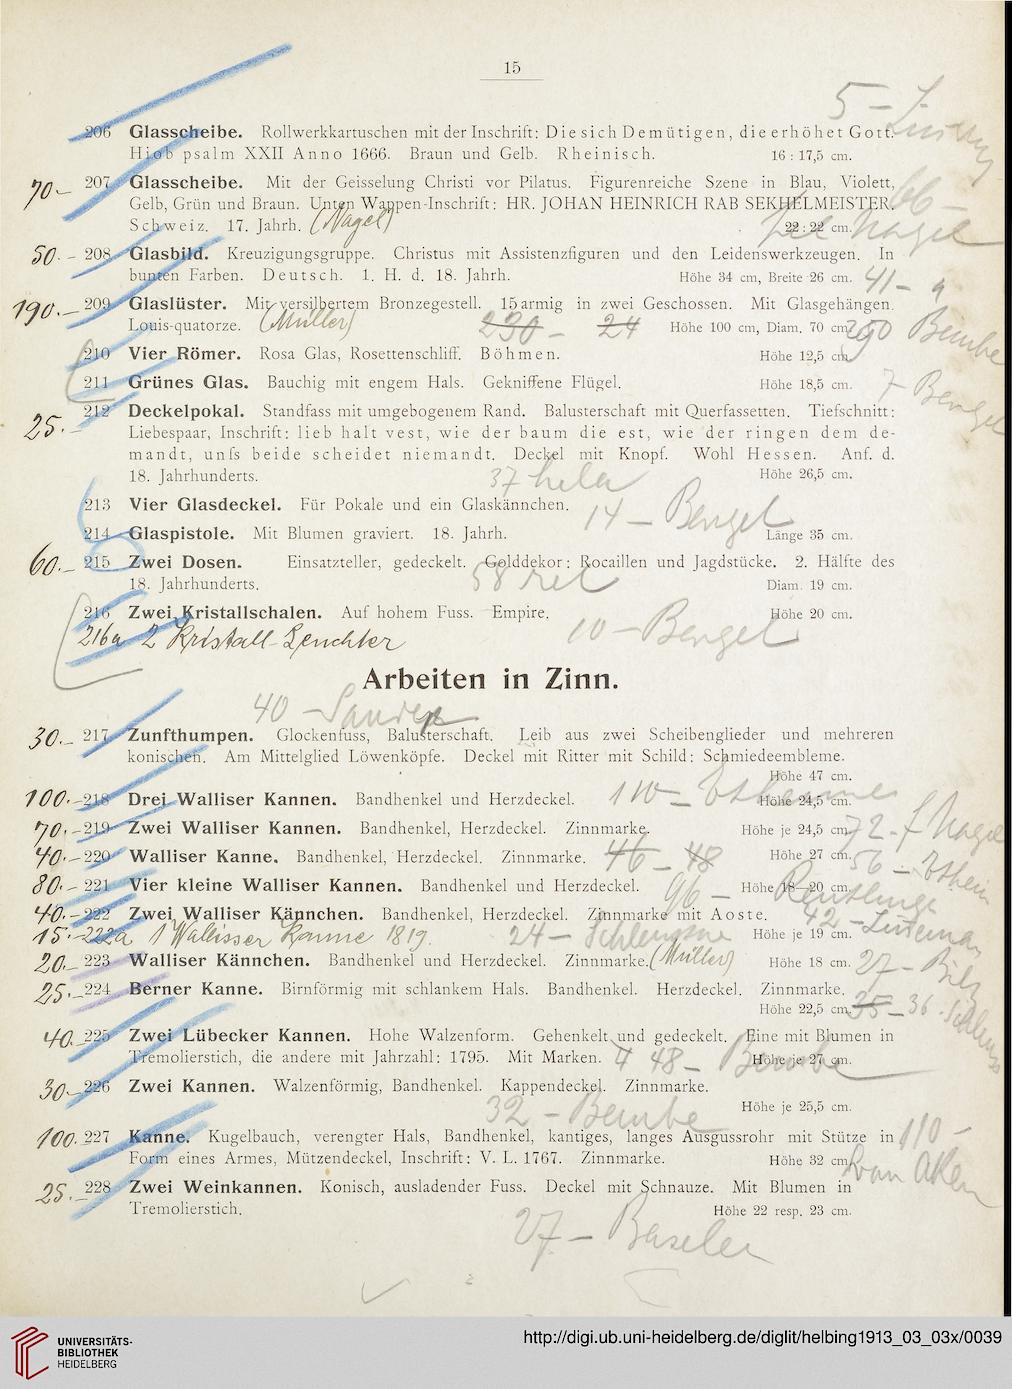 15
5 –
206 Glasscheibe. Rollwerkkartuschen mit der Inschrift: Die sich Demütigen, die erhöhet Gott.
Hiob psalm XXII Anno 1666. Braun und Gelb. Rheinisch. 16 : 17,5 cm.
70.– 207 Glasscheibe. Mit der Geisselung Christi vor Pilatus. Figurenreiche Szene in Blau, Violett, 66 –
Gelb, Grün und Braun. Unten Wappen-Inschrift: HR. JOHAN HEINRICH RAB SEKHELMEISTER.
Schweiz. 17. Jahrh. (Nagel) 22 : 22 cm. Nagel
50.– 208 Glasbild. Kreuzigungsgruppe. Christus mit Assistenzfiguren und den Leidenswerkzeugen. In
bunten Farben. Deutsch. 1. H. d. 18. Jahrh. Höhe 34 cm, Breite 26 cm. 41 –
190.– 209 Glaslüster. Mit versilbertem Bronzegestell. 15 armig in zwei Geschossen. Mit Glasgehängen.
Louis-quatorze. (Müller) 230 – 24 Höhe 100 cm, Diam. 70 cm. 250 Bembe
210 Vier Römer. Rosa Glas, Rosettenschliff. Böhmen. Höhe 12,5 cm.
211 Grünes Glas. Bauchig mit engem Hals. Gekniffene Flügel. Höhe 18,5 cm. 7 – Bengel
25.– 212 Deckelpokal. Standfass mit umgebogenem Rand. Balusterschaft mit Querfassetten. Tiefschnitt:
Liebespaar, Inschrift: lieb halt vest, wie der baum die est, wie der ringen dem de-
mandt, unfs beide scheidet niemandt. Deckel mit Knopf. Wohl Hessen. Anf. d.
18. Jahrhunderts. 37 Höhe 26,5 cm.
213 Vier Glasdeckel. Für Pokale und ein Glaskännchen. 14 – Bengel
214 Glaspistole. Mit Blumen graviert. 18. Jahrh. Länge 35 cm.
60.– 215 Zwei Dosen. Einsatzteller, gedeckelt. Golddekor: Rocaillen und Jagdstücke. 2. Hälfte des
18. Jahrhunderts. 58 Diam. 19 cm.
216 Zwei Kristallschalen. Auf hohem Fuss. Empire. Höhe 20 cm.
216a 2 Kristall-Leuchter 10 – Bengel
Arbeiten in Zinn.
40 –
30.– 217 Zunfthumpen. Glockenfuss, Balusterschaft. Leib aus zwei Scheibenglieder und mehreren
konischen. Am Mittelglied Löwenköpfe. Deckel mit Ritter mit Schild: Schmiedeembleme.
Höhe 47 cm.
100.– 218 Drei Walliser Kannen. Bandhenkel und Herzdeckel. 110 – Höhe 24,5 cm.
70.– 219 Zwei Walliser Kannen. Bandhenkel, Herzdeckel. Zinnmarke. Höhe je 24,5 cm. 72.– Nagel
40.– 220 Walliser Kanne. Bandhenkel, Herzdeckel. Zinnmarke. 46 – 48 Höhe 27 cm. 56 –
80.– 221 Vier kleine Walliser Kannen. Bandhenkel und Herzdeckel. 96 – Höhe 18–20 cm.
40.– 222 Zwei Walliser Kännchen. Bandhenkel, Herzdeckel. Zinnmarke mit Aoste. 42 –
15.– 222a 1 Walliser Kanne 1819. 24 – Höhe je 19 cm.
20.– 223 Walliser Kännchen. Bandhenkel und Herzdeckel. Zinnmarke. (Müller) Höhe 18 cm. 27 –
25.– 224 Berner Kanne. Birnförmig mit schlankem Hals. Bandhenkel. Herzdeckel. Zinnmarke.
Höhe 22,5 cm. 35 – 36
40.– 225 Zwei Lübecker Kannen. Hohe Walzenform. Gehenkelt und gedeckelt. Eine mit Blumen in
Tremolierstich, die andere mit Jahrzahl: 1795. Mit Marken. 48 – Bembe Höhe je 27 cm.
30 – 226 Zwei Kannen. Walzenförmig, Bandhenkel. Kappendeckel. Zinnmarke.
32 – Bembe Höhe je 25,5 cm.
100. 227 Kanne. Kugelbauch, verengter Hals, Bandhenkel, kantiges, langes Ausgussrohr mit Stütze in 110 –
Form eines Armes, Mützendeckel, Inschrift: V. L. 1767. Zinnmarke. Höhe 32 cm. van Aken
25.– 228 Zwei Weinkannen. Konisch, ausladender Fuss. Deckel mit Schnauze. Mit Blumen in
Tremolierstich. Höhe 22 resp. 23 cm.
27 – Baseler
UNIVERSITÄTS-
BIBLIOTHEK
HEIDELBERG
http://digi.ub.uni-heidelberg.de/diglit/helbing1913_03_03x/0039